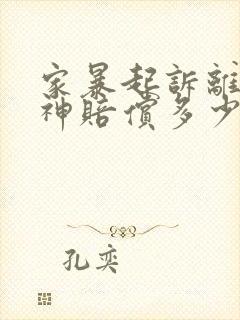 家暴起訴離
神賠償多少
孔奕